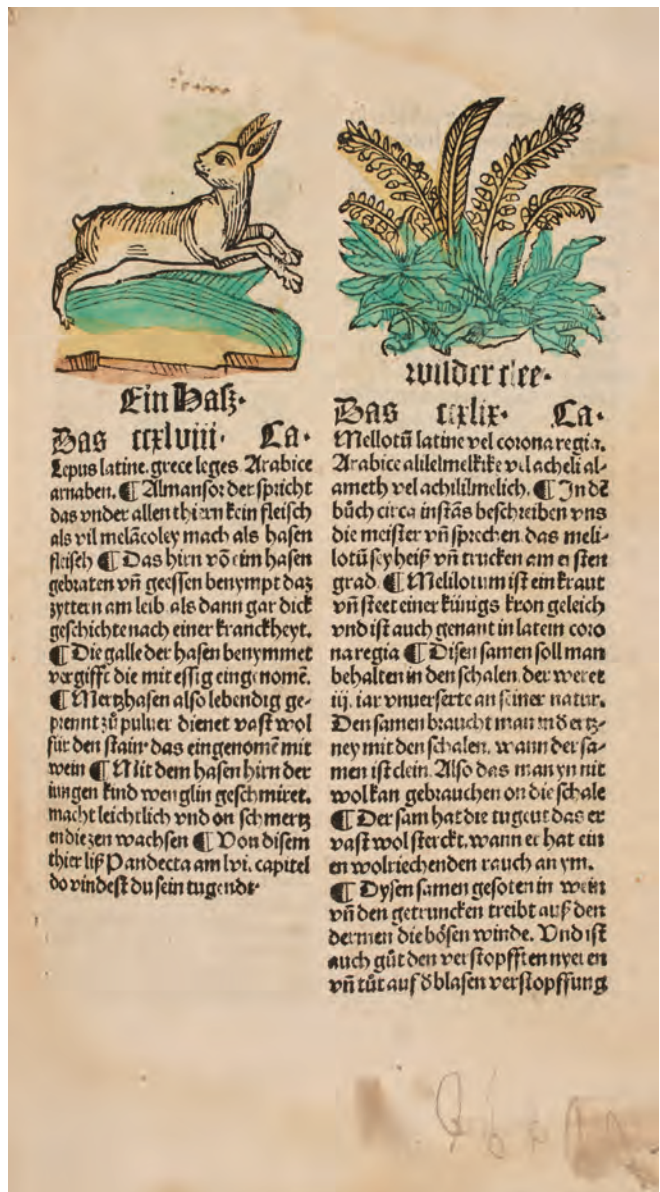 Ein Hasz·
Das ccxlviii· Ca·
Lepus latine. grece leges. Arabice
arnaben. ¶ Almansor der spricht
das vnder allen thiern kein fleisch
als vil melācoley mach als hasen
fleisch ¶ Das hirn vō eim hasen
gebraten vñ geessen benympt daz
zyttern am leib als dann gar dick
geschichte nach einer kranckheyt.
¶ Die galle der hasen benymmet
vergifft die mit essig eingenomē.
¶ Mertzhasen also lebendig ge-
prennt zů puluer dienet vast wol
für den stain· das eingenomē mit
wein ¶ Mit dem hasen hirn der
iungen kind wenglin geschmiret.
macht leichtlich vnd on schmertz
en die zen wachsen ¶ Von disem
thier lisz Pandecta am lvi. capitel
do vindest du sein tugendt·
wilder clee·
Das ccxlix· Ca·
Mellotū latine vel corona regia.
Arabice alilelmelkike vel acheli al-
ameth vel achililmelich. ¶ In dē
bůch circa instās beschreiben vns
die meister vñ sprechen das meli-
lotū sey heiß vñ trucken am ersten
grad. ¶ Melilotum ist ein kraut
vñ steet einer künigs kron geleich
vnd ist auch genant in latein coro
na regia ¶ Disen samen soll man
behalten in den schalen. der weret
iij. iar vnuerserte an seiner natur.
Den samen braucht man in d ertz-
ney mit den schalen. wann der sa-
men ist clein. Also das man yn nit
wol kan gebrauchen on die schale
¶ Der sam hat die tugent das er
vast wol sterckt. wann er hat ein
en wolriechenden rauch an ym.
¶ Dysen samen gesoten in wein
vñ den getruncken treibt auß den
dermen die bösen winde. Vnd ist
auch gůt den verstopfften nyeren
vñ tůt auf d blasen verstopffung